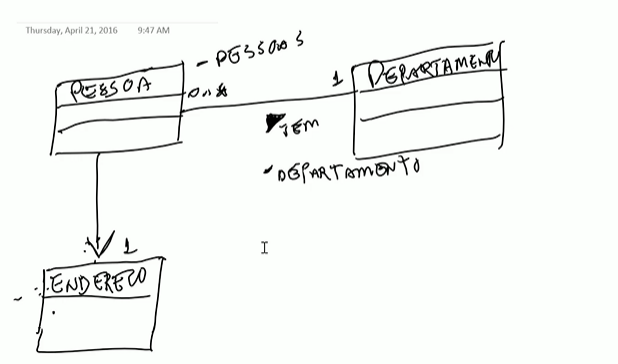 Thursday, April 21, 2016 9:47 AM
- PESSOAS
PESSOA
0..*
1
DEPARTAMENTO
TEM
- DEPARTAMENTO
1
ENDERECO